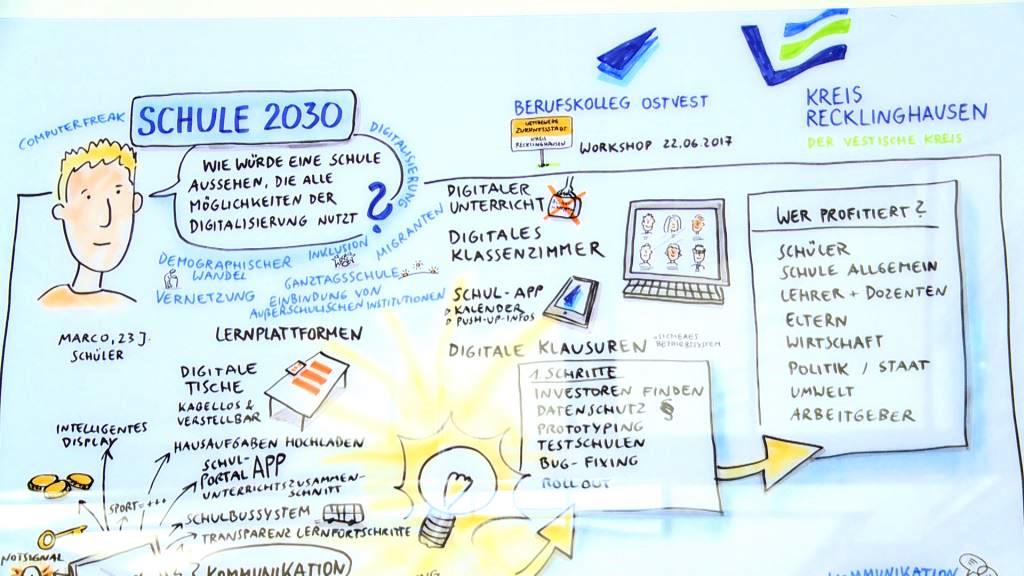 COMPUTERFREAK
SCHULE 2030
DIGITALISIERUNG
WIE WÜRDE EINE SCHULE
AUSSEHEN, DIE ALLE
MÖGLICHKEITEN DER
DIGITALISIERUNG NUTZT
?
DEMOGRAPHISCHER
WANDEL
INKLUSION
MIGRANTEN
GANZTAGSSCHULE
VERNETZUNG
EINBINDUNG VON
AUßERSCHULISCHEN INSTITUTIONEN
MARCO, 23 J.
SCHÜLER
LERNPLATTFORMEN
DIGITALE
TISCHE
KABELLOS &
VERSTELLBAR
INTELLIGENTES
DISPLAY
HAUSAUFGABEN HOCHLADEN
SCHUL-
PORTAL APP
UNTERRICHTSZUSAMMEN-
SCHNITT
SPORT = +++
SCHULBUSSYSTEM
TRANSPARENZ LERNFORTSCHRITTE
NOTSIGNAL
KOMMUNIKATION
BERUFSKOLLEG OSTVEST
WETTBEWERB
ZUKUNFTSSTADT
KREIS
RECKLINGHAUSEN
WORKSHOP 22.06.2017
KREIS
RECKLINGHAUSEN
DER VESTISCHE KREIS
DIGITALER
UNTERRICHT
DIGITALES
KLASSENZIMMER
SCHUL-APP
KALENDER
PUSH-UP-INFOS
DIGITALE KLAUSUREN
SICHERES
BETRIEBSSYSTEM
1. SCHRITTE
INVESTOREN FINDEN
DATENSCHUTZ §
PROTOTYPING
TESTSCHULEN
BUG-FIXING
ROLLOUT
WER PROFITIERT?
SCHÜLER
SCHULE ALLGEMEIN
LEHRER + DOZENTEN
ELTERN
WIRTSCHAFT
POLITIK / STAAT
UMWELT
ARBEITGEBER
KOMMUNIKATION